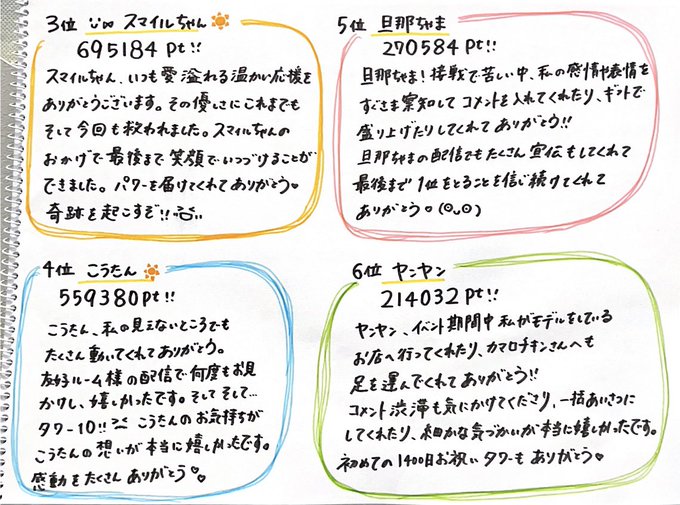 3位 スマイルちゃん
695184 Pt!!
スマイルちゃん、いつも愛溢れる温かい応援を
ありがとうございます。その優しさにこれまでも
そして今回も救われました。スマイルちゃんの
おかげで最後まで笑顔でいつづけることが
できました。パワーを届けてくれてありがとう♡
奇跡を起こすぞ!!
4位 こうたん
559380 Pt!!
こうたん、私の見えないところでも
たくさん動いてくれてありがとう。
友好ルーム様の配信で何度もお見
かけし、嬉しかったです。そしてそして…
タワー10!! こうたんのお気持ちが
こうたんの想いが本当に嬉しかったです。
感動をたくさんありがとう♡♡
5位 旦那ちゃま
270584 Pt!!
旦那ちゃま!接戦で苦しい中、私の感情や表情を
すぐさま察知してコメントを入れてくれたり、ギフトで
盛り上げたりしてくれてありがとう!!
旦那ちゃまの配信でもたくさん宣伝もしてくれて
最後まで1位をとることを信じ続けてくれて
ありがとう♡(⊙ᴗ⊙)
6位 ヤンヤン
214032 Pt!!
ヤンヤン、イベント期間中私がモデルをしている
お店へ行ってくれたり、カマロチキンさんへも
足を運んでくれてありがとう!!
コメント渋滞も気にかけてくださり、一括あいさつに
してくれたり、細かな気づかいが本当に嬉しかったです。
初めての1400日お祝いタワーもありがとう♡